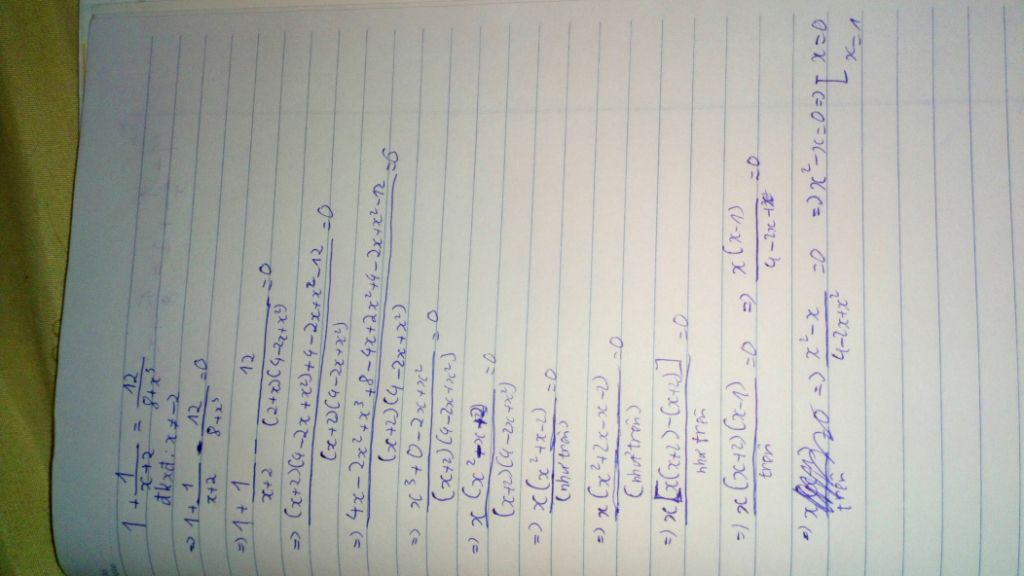 1 + 1/(x+2) = 12/(8+x³)
đkxđ: x ≠ -2
=> 1 + 1/(x+2) - 12/(8+x³) = 0
=> 1 + 1/(x+2) - 12/((2+x)(4-2x+x²)) = 0
=> ((x+2)(4-2x+x²)+4-2x+x²-12)/((x+2)(4-2x+x²)) = 0
=> (4x-2x²+x³+8-4x+2x²+4-2x+x²-12)/((x+2)(4-2x+x²)) = 0
=> (x³+0-2x+x²)/((x+2)(4-2x+x²)) = 0
=> x(x²-x+2)/((x+2)(4-2x+x²)) = 0
=> x(x²+x-2)/(như trên) = 0
=> x(x²+2x-x-2)/(như trên) = 0
=> x[x(x+2)-(x+2)]/như trên = 0
=> x(x+2)(x-1)/trên = 0 => x(x-1)/(4-2x+x²) = 0
=> (x²-x)/(4-2x+x²) = 0 => x²-x=0 => [x=0
x=1